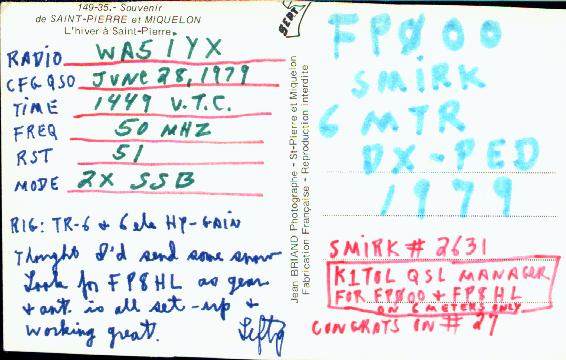 149-35.- Souvenir
de SAINT-PIERRE et MIQUELON
L'hiver à Saint-Pierre.
RADIO WA5IYX
CFG QSO JUNE 28, 1979
TIME 1449 U.T.C.
FREQ 50 MHZ
RST 51
MODE 2X SSB
RIG: TR-6 & 6 ele HY-GAIN
Thought I'd send some snow
Look for FP8HL as gear
& ant. is all set-up &
working great. Lefty
Jean BRIAND Photographe - St-Pierre et Miquelon
Fabrication Française - Reproduction interdite
FPØOO
SMIRK
6 MTR
DX-PED
1979
SMIRK # 2631
K1TOL QSL MANAGER
FOR FPØOO & FP8HL
ON 6 METERS ONLY
CONGRATS ON # 27